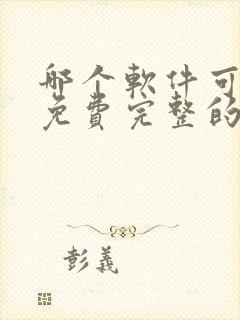 哪个軟件可
免費完整的
彭義